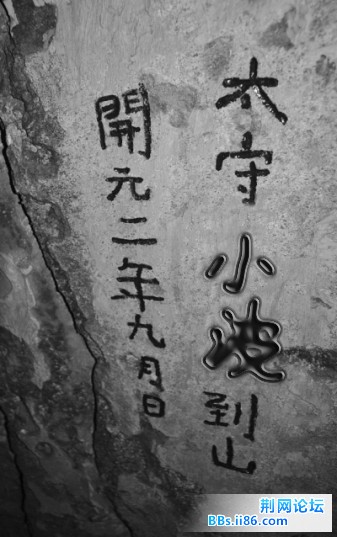 太守小波到山
開元二年九月日
荆网论坛
BBs.ii86.com